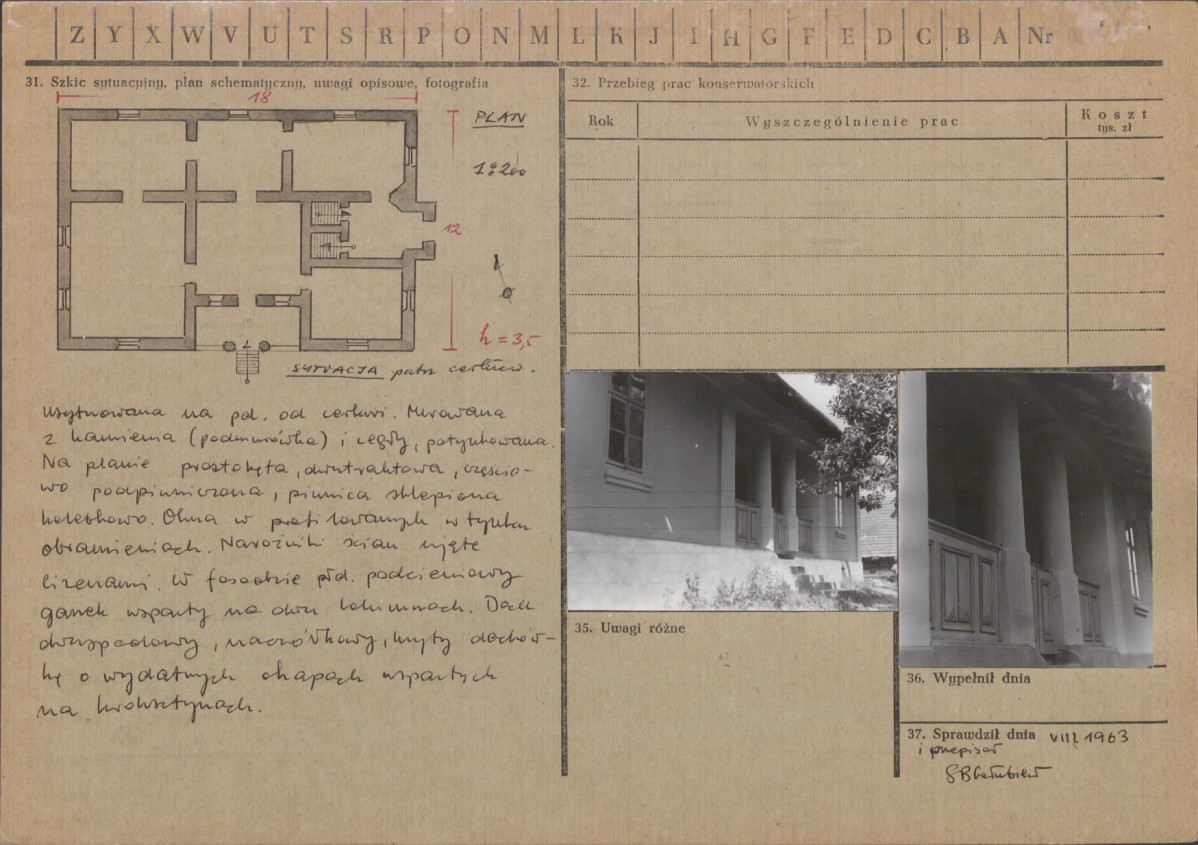 Z Y X W V U T S R P O N M L K J I H G F E D C B A Nr
31. Szkic sytuacyjny, plan schematyczny, uwagi opisowe, fotografia
18
PLAN
1:200
12
h = 3,5
SYTUACJA patrz cerkiew.
Usytuowana na pd. od cerkwi. Murowana
z kamienia (podmurówka) i cegły, potynkowana.
Na planie prostokąta, dwutraktowa, częścio-
wo podpiwniczona, piwnica sklepiona
kolebkowo. Okna w profilowanych w tynku
obramieniach. Narożniki ścian ujęte
lizenami. W fasadzie płd. podcieniowy
ganek wsparty na dwu kolumnach. Dach
dwuspadowy, naczółkowy, kryty dachów-
ką o wydatnych okapach wspartych
na kroksztynach.
32. Przebieg prac konserwatorskich
Rok
Wyszczególnienie prac
Koszt
tys. zł
35. Uwagi różne
36. Wypełnił dnia
37. Sprawdził dnia VIII 1963
i przepisał